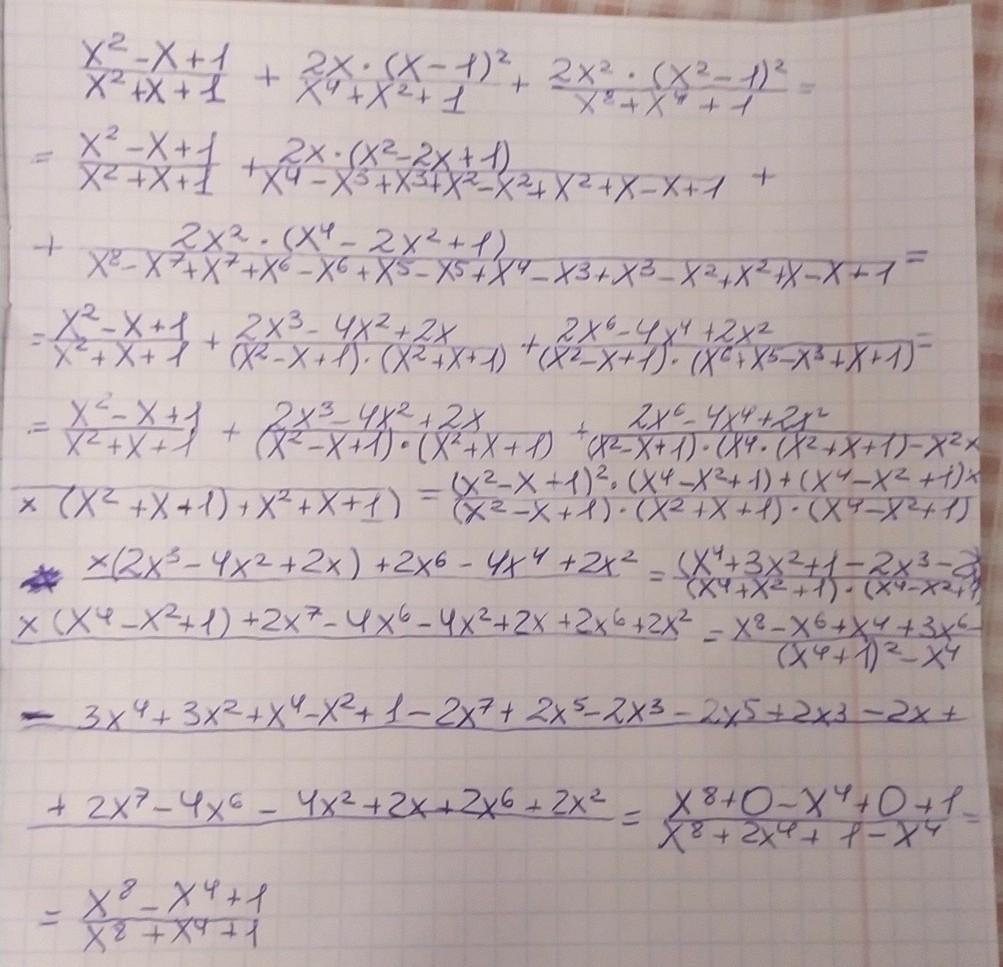 (x² - x + 1)/(x² + x + 1) + (2x · (x - 1)²)/(x⁴ + x² + 1) + (2x² · (x² - 1)²)/(x⁸ + x⁴ + 1) =
= (x² - x + 1)/(x² + x + 1) + (2x · (x² - 2x + 1))/(x⁴ - x³ + x³ + x² - x² + x² + x - x + 1) +
+ (2x² · (x⁴ - 2x² + 1))/(x⁸ - x⁷ + x⁷ + x⁶ - x⁶ + x⁵ - x⁵ + x⁴ - x³ + x³ - x² + x² + x - x + 1) =
= (x² - x + 1)/(x² + x + 1) + (2x³ - 4x² + 2x)/((x² - x + 1) · (x² + x + 1)) + (2x⁶ - 4x⁴ + 2x²)/((x² - x + 1) · (x⁶ + x⁵ - x³ + x + 1)) =
= (x² - x + 1)/(x² + x + 1) + (2x³ - 4x² + 2x)/((x² - x + 1) · (x² + x + 1)) + (2x⁶ - 4x⁴ + 2x²)/((x² - x + 1) · (x⁴ · (x² + x + 1) - x² ×
× (x² + x + 1) + x² + x + 1) = ((x² - x + 1)² · (x⁴ - x² + 1) + (x⁴ - x² + 1) ×)/((x² - x + 1) · (x² + x + 1) · (x⁴ - x² + 1))
× (2x³ - 4x² + 2x) + 2x⁶ - 4x⁴ + 2x² = ((x⁴ + 3x² + 1 - 2x³ - 2x)/((x⁴ + x² + 1) · (x⁴ - x² + 1))
× (x⁴ - x² + 1) + 2x⁷ - 4x⁶ - 4x² + 2x + 2x⁶ + 2x² = (x⁸ - x⁶ + x⁴ + 3x⁶ -)/((x⁴ + 1)² - x⁴)
- 3x⁴ + 3x² + x⁴ - x² + 1 - 2x⁷ + 2x⁵ - 2x³ - 2x⁵ + 2x³ - 2x +
+ 2x⁷ - 4x⁶ - 4x² + 2x + 2x⁶ + 2x² = (x⁸ + 0 - x⁴ + 0 + 1)/(x⁸ + 2x⁴ + 1 - x⁴) =
= (x⁸ - x⁴ + 1)/(x⁸ + x⁴ + 1)